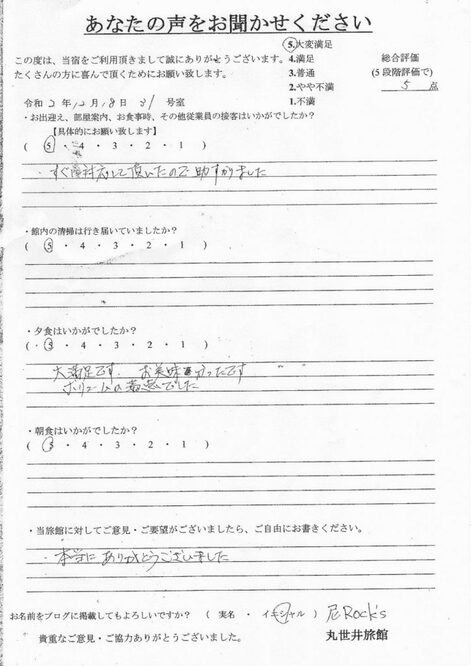 あなたの声をお聞かせください
この度は、当宿をご利用頂きまして誠にありがとうございます。
たくさんの方に喜んで頂くためにお願い致します。
5.大変満足
4.満足
3.普通
2.やや不満
1.不満
総合評価
(5段階評価で)
5 点
令和2年12月18日 31号室
・お出迎え、部屋案内、お食事時、その他従業員の接客はいかがでしたか?
【具体的にお願い致します】
( 5 ・ 4 ・ 3 ・ 2 ・ 1 )
すぐ対応して頂いたので助かりました
・館内の清掃は行き届いていましたか?
( 5 ・ 4 ・ 3 ・ 2 ・ 1 )
・夕食はいかがでしたか?
( 5 ・ 4 ・ 3 ・ 2 ・ 1 )
大満足です. お美味かったです
ボリュームの
でした
・朝食はいかがでしたか?
( 5 ・ 4 ・ 3 ・ 2 ・ 1 )
・当旅館に対してご意見・ご要望がございましたら、ご自由にお書きください。
本当にありがとうございました
お名前をブログに掲載してもよろしいですか? ( 実名 ・ イニシャル ) 尼Rock's
貴重なご意見・ご協力ありがとうございました。
丸世井旅館